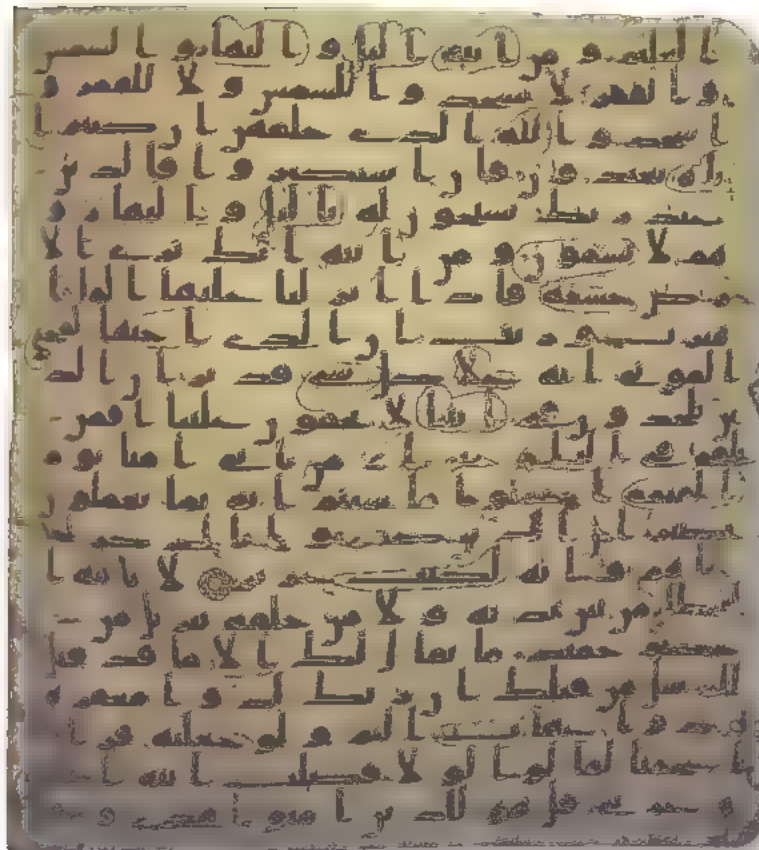 العليم ومن ايته اليل والنهار والشمس
والقمر لا تسجدوا للشمس ولا للقمر و
اسجدوا لله الذي خلقهن ان كنتم ا
ياه تعبدون فان استكبروا فالذين
عند ربك يسبحون له باليل والنهار و
هم لا يسمون ومن ايته انك ترى الا
رض خشعة فاذا انزلنا عليها الما ا
هتزت وربت ان الذي احياها لمحي
الموتى انه على كل شي قدير ان الذ
ين يلحدون في ايتنا لا يخفون علينا افمن
يلقى في النار خير ام من ياتي امنا يوم
القيمة اعملوا ما شيتم انه بما تعملون
بصير ان الذين كفروا بالذكر لما
جاهم وانه لكتب عزيز لا ياتيه ا
لبطل من بين يديه ولا من خلفه تنزيل من
حكيم حميد ما يقال لك الا ما قد قيل
للرسل من قبلك ان ربك لذو مغفر
ة وذو عقاب اليم ولو جعلنه قرا
نا اعجميا لقالوا لولا فصلت ايته ا
عجمي وعربي قل هو للذين امنوا هدى و